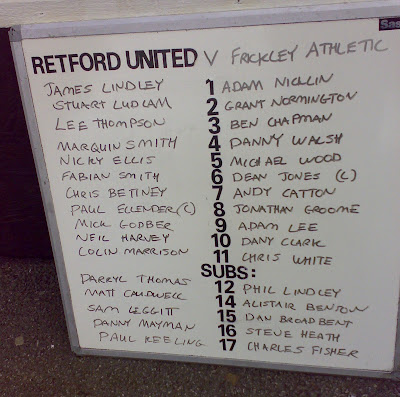 Sas
RETFORD UNITED V FRICKLEY ATHLETIC
JAMES LINDLEY 1 ADAM NICLIN
STUART LUDLAM 2 GRANT NORMINGTON
LEE THOMPSON 3 BEN CHAPMAN
MARQUIN SMITH 4 DANNY WALSH
NICKY ELLIS 5 MICHAEL WOOD
FABIAN SMITH 6 DEAN JONES (C)
CHRIS BETINEY 7 ANDY CATTON
PAUL ELLENDER (C) 8 JONATHAN GROOME
MICK GODBER 9 ADAM LEE
NEIL HARVEY 10 DANY CLARK
COLIN MARRISON 11 CHRIS WHITE
SUBS:
DARRYL THOMAS 12 PHIL LINDLEY
MATT CAUDWELL 14 ALISTAIR BENTON
SAM LEGGITT 15 DAN BROADBENT
DANNY MAYMAN 16 STEVE HEATH
PAUL KEELING 17 CHARLES FISHER